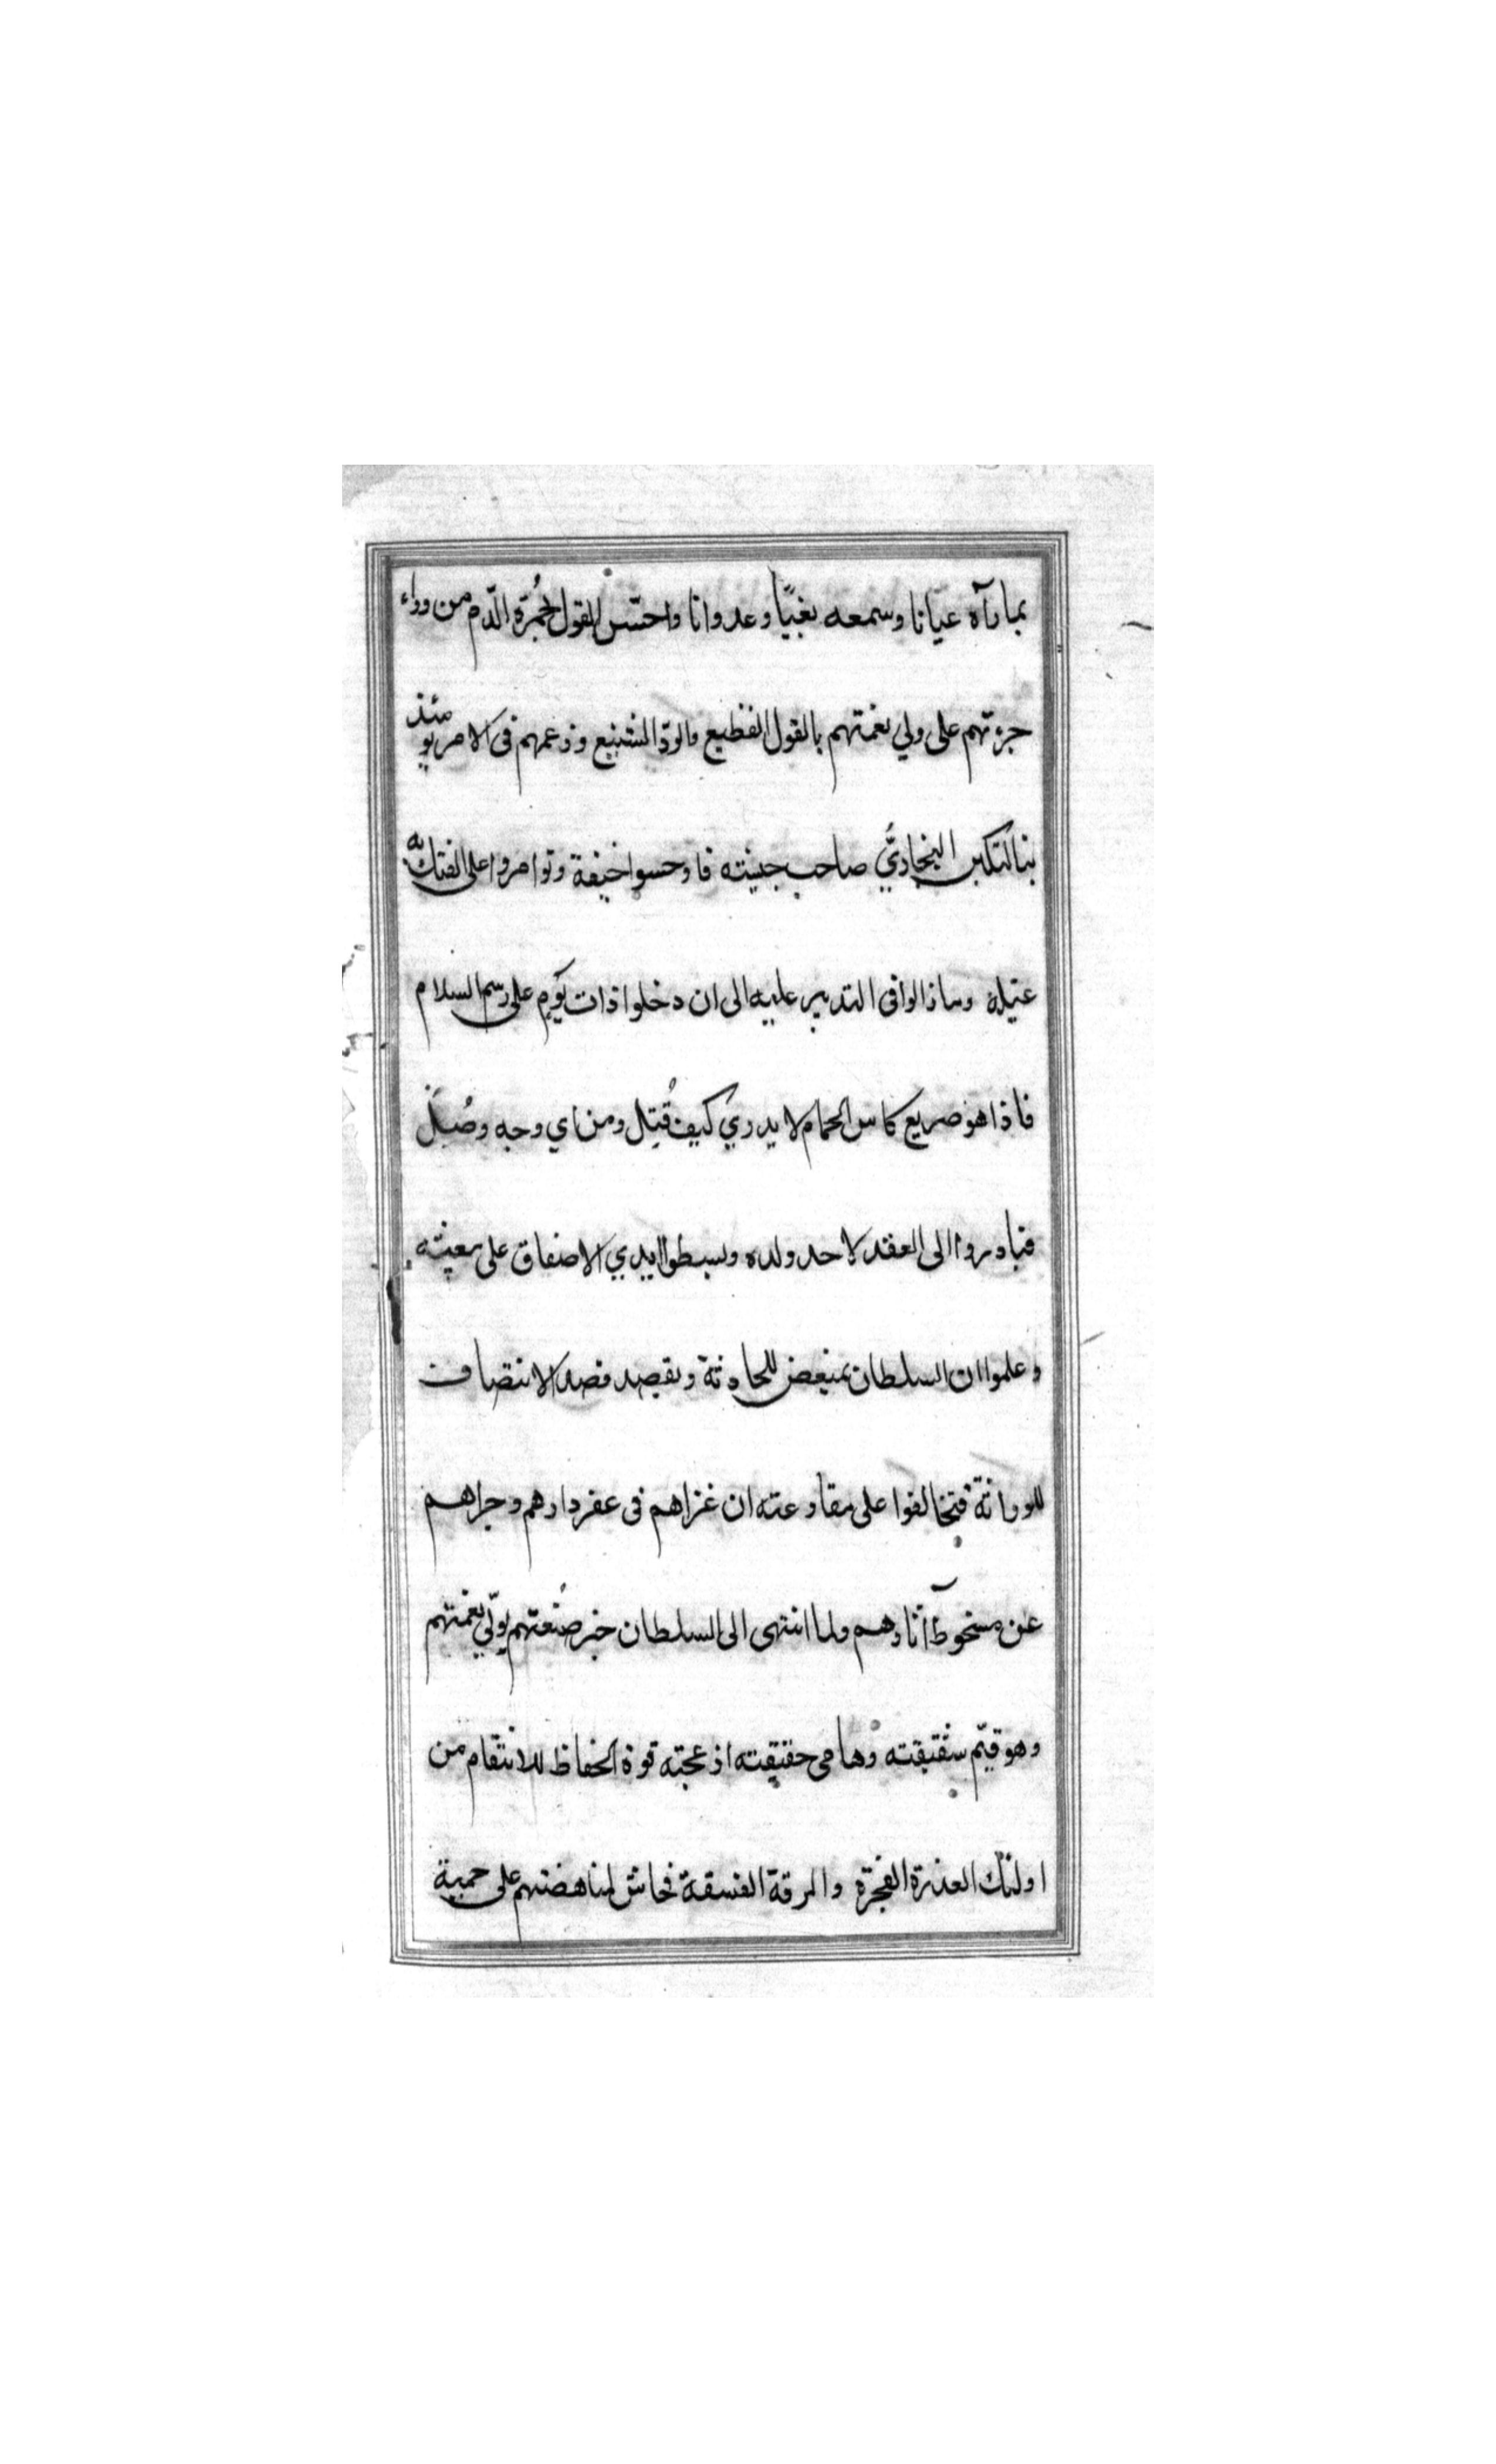 بما رآه عيانا وسمعه بغيّا وعدوانا واحتس القول بحُمرة الدّم من وراء
جرءتهم على ولي نعمتهم بالقول الفظيع والردّ الشنيع وزعمهم فى الامر يومئذ
ينالتكين البخاريُّ صاحب جيشه فاوحسوا خيفة وتوامروا على الفتك به
غيلة وما زالوا فى التدبير عليه الى ان دخلوا ذات يَومٍ على رسم السلام
فاذا هو صريع كاس الحمام لا يدري كيف قُتِل ومن اي وجه وصُل
فبادروا الى العقد لاحد ولده وبسطوا ايدي الاصفاق على بيعته
وعلموا ان السلطان يمتعض للحادثة ويقصد قصد الانتصاف
للوراثة فتحالفوا على مقاومته ان غزاهم فى عقر دارهم وجراهم
عن مسخوط آثارهم ولما انتهى الى السلطان خبر صنعتهم بولّي نعمتهم
وهو قيّم شقيقته وحامى حقيقته ازعجته قوة الحفاظ للانتقام من
اولئك الغدرة الفجرة والمرقة الفسقة فجاش لمناهضتهم على حمية